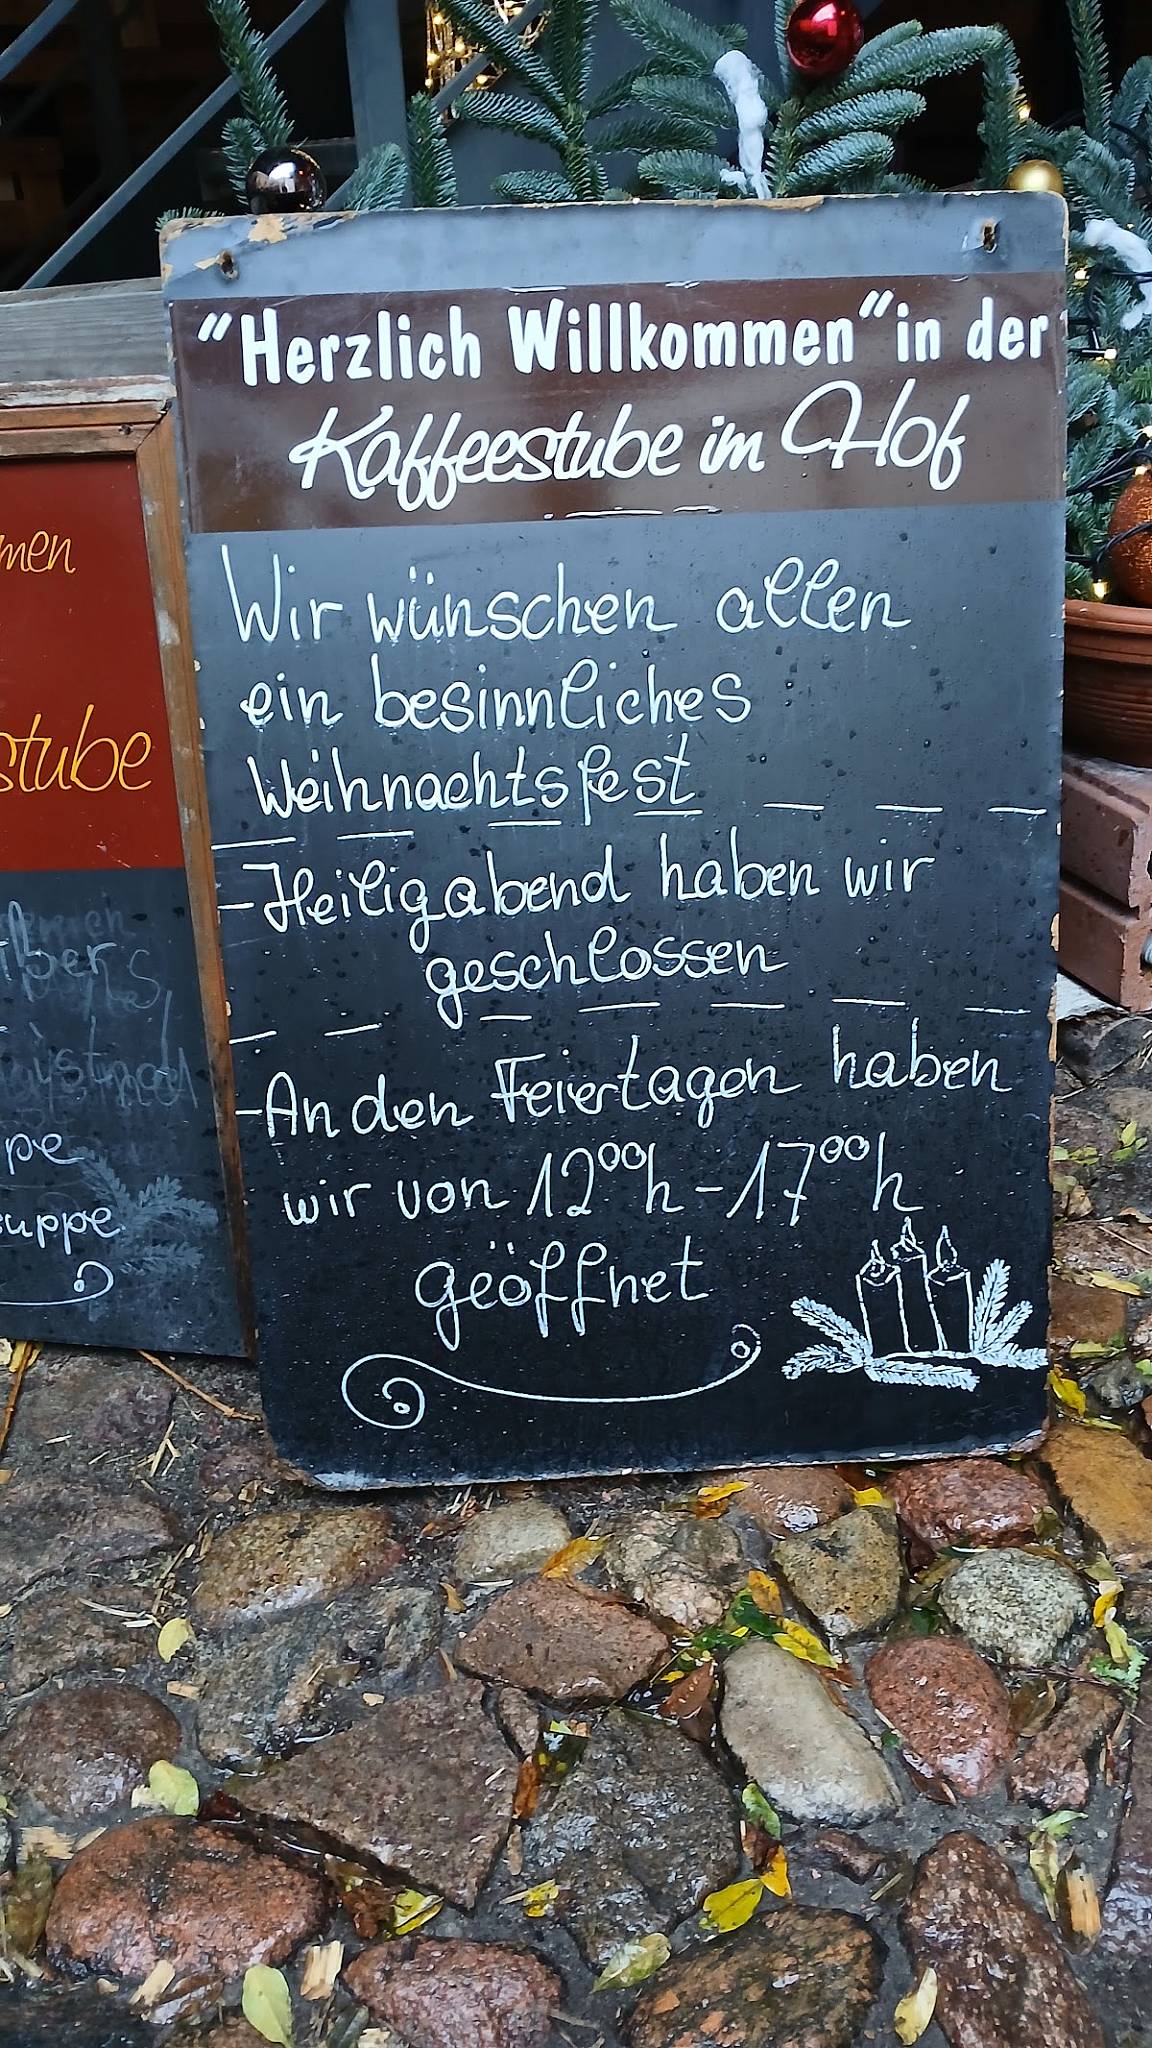 "Herzlich Willkommen" in der
Kaffeestube im Hof
Wir wünschen allen
ein besinnliches
Weihnachtsfest
- Heiligabend haben wir
geschlossen
- An den Feiertagen haben
wir von 12⁰⁰h - 17⁰⁰h
geöffnet
men
stube
pe
suppe